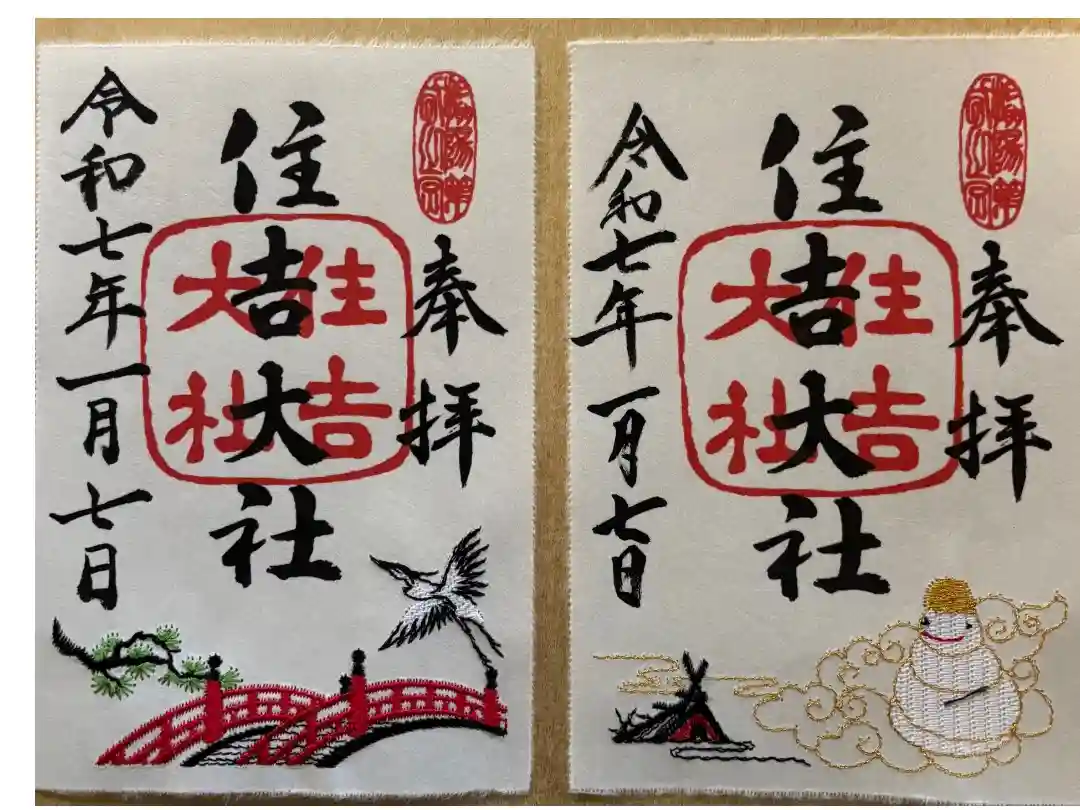 奉拝
住吉大社
住吉大社
令和七年一月七日
奉拝
住吉大社
住吉大社
令和七年一月七日